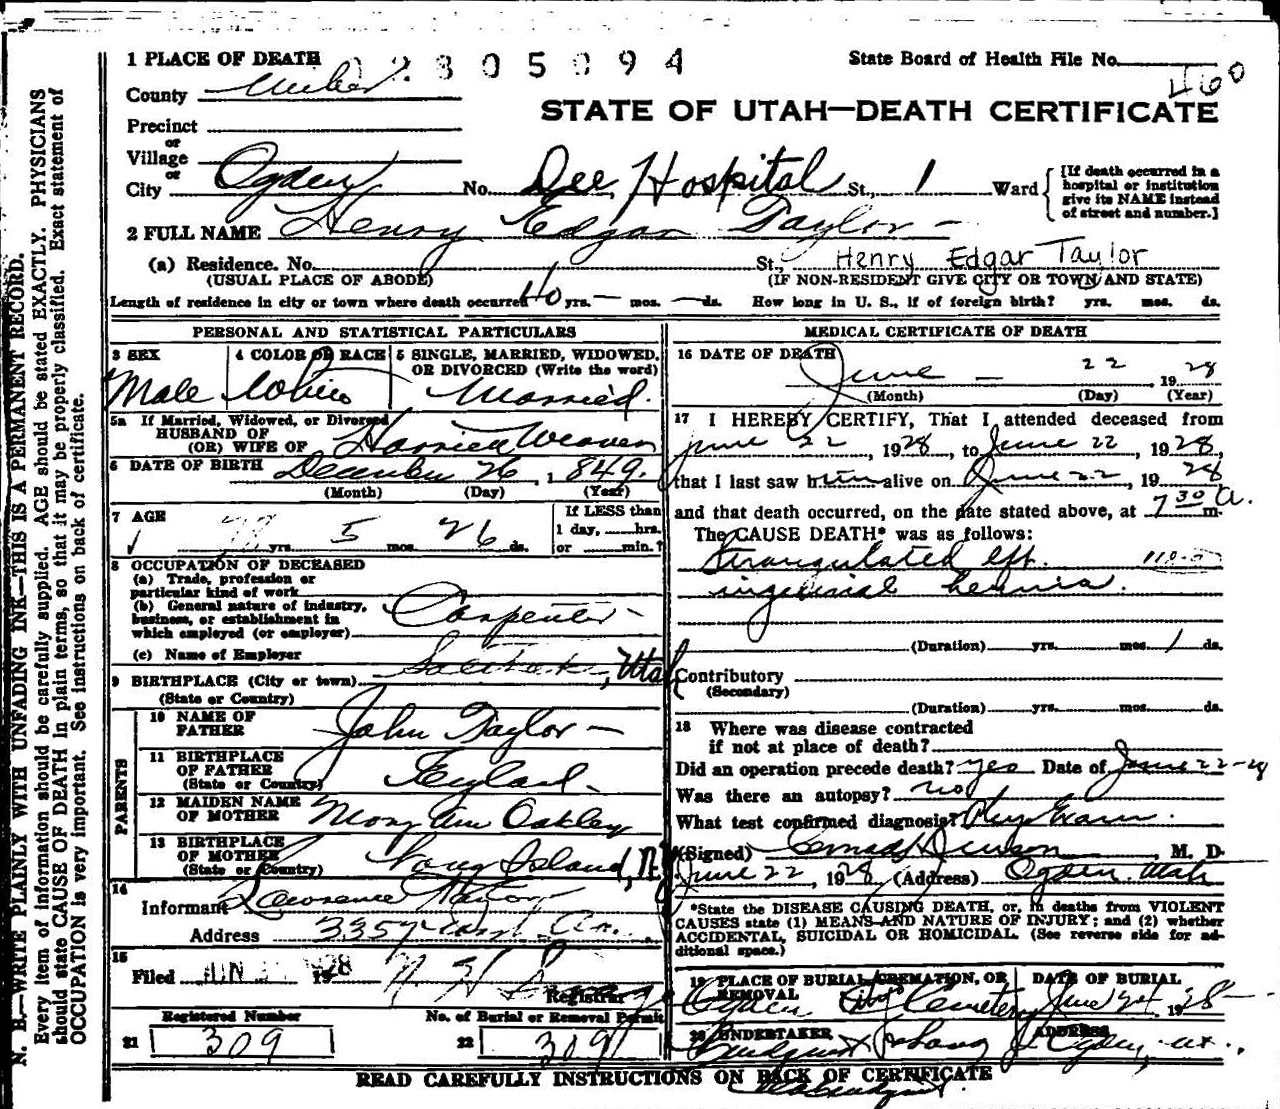 N. B.—WRITE PLAINLY WITH UNFADING INK—THIS IS A PERMANENT RECORD.
Every item of information should be carefully supplied. AGE should be stated EXACTLY. PHYSICIANS
should state CAUSE OF DEATH in plain terms, so that it may be properly classified. Exact statement of
OCCUPATION is very important. See instructions on back of certificate.
1 PLACE OF DEATH 2805094 State Board of Health File No. 460
County Weber
STATE OF UTAH—DEATH CERTIFICATE
Precinct
or
Village
or
City Ogden No. Dee Hospital St., 1 Ward
[If death occurred in a
hospital or institution
give its NAME instead
of street and number.]
2 FULL NAME Henry Edgar Taylor -
(a) Residence. No. St., Henry Edgar Taylor
(USUAL PLACE OF ABODE) (IF NON-RESIDENT GIVE CITY OR TOWN AND STATE)
Length of residence in city or town where death occurred 40 yrs. — mos. — ds. How long in U. S., if of foreign birth? yrs. mos. ds.
PERSONAL AND STATISTICAL PARTICULARS
3 SEX 4 COLOR OR RACE 5 SINGLE, MARRIED, WIDOWED,
OR DIVORCED (Write the word)
Male White Married.
5a If Married, Widowed, or Divorced
HUSBAND OF
(OR) WIFE OF Harriett Weaver
6 DATE OF BIRTH December 26, 1849.
(Month) (Day) (Year)
7 AGE 78 yrs. 5 mos. 26 ds.
If LESS than
1 day, hrs.
or min.?
8 OCCUPATION OF DECEASED
(a) Trade, profession or
particular kind of work
(b) General nature of industry,
business, or establishment in
which employed (or employer)
Carpenter -
(c) Name of Employer
9 BIRTHPLACE (City or town) , Utah
(State or Country)
PARENTS
10 NAME OF
FATHER John Taylor -
11 BIRTHPLACE
OF FATHER
(State or Country) England
12 MAIDEN NAME
OF MOTHER Mary Ann Oakley
13 BIRTHPLACE
OF MOTHER
(State or Country) Long Island, N.Y
14
Informant Lawrence
Address 3357
15
Filed JUN 1928
Registrar
Registered Number No. of Burial or Removal Permit
21 309 22 309
MEDICAL CERTIFICATE OF DEATH
16 DATE OF DEATH
June - 22 1928
(Month) (Day) (Year)
17 I HEREBY CERTIFY, That I attended deceased from
June 22, 1928, to June 22, 1928,
that I last saw him alive on June 22, 1928
and that death occurred, on the date stated above, at 7 30 a. m.
The CAUSE DEATH* was as follows:
Strangulated left
inguinal hernia.
(Duration) yrs. mos. 1 ds.
Contributory
(Secondary)
(Duration) yrs. mos. ds.
18 Where was disease contracted
if not at place of death?
Did an operation precede death? yes Date of June 22-28
Was there an autopsy? no
What test confirmed diagnosis? Phys Exam.
(Signed) M. D.
June 22, 1928 (Address) Ogden Utah
*State the DISEASE CAUSING DEATH, or, in deaths from VIOLENT
CAUSES state (1) MEANS AND NATURE OF INJURY; and (2) whether
ACCIDENTAL, SUICIDAL OR HOMICIDAL. (See reverse side for ad-
ditional space.)
19 PLACE OF BURIAL, CREMATION, OR
REMOVAL DATE OF BURIAL
Ogden City Cemetery June 24 1928
20 UNDERTAKER ADDRESS
Ogden, ut.,
READ CAREFULLY INSTRUCTIONS ON BACK OF CERTIFICATE